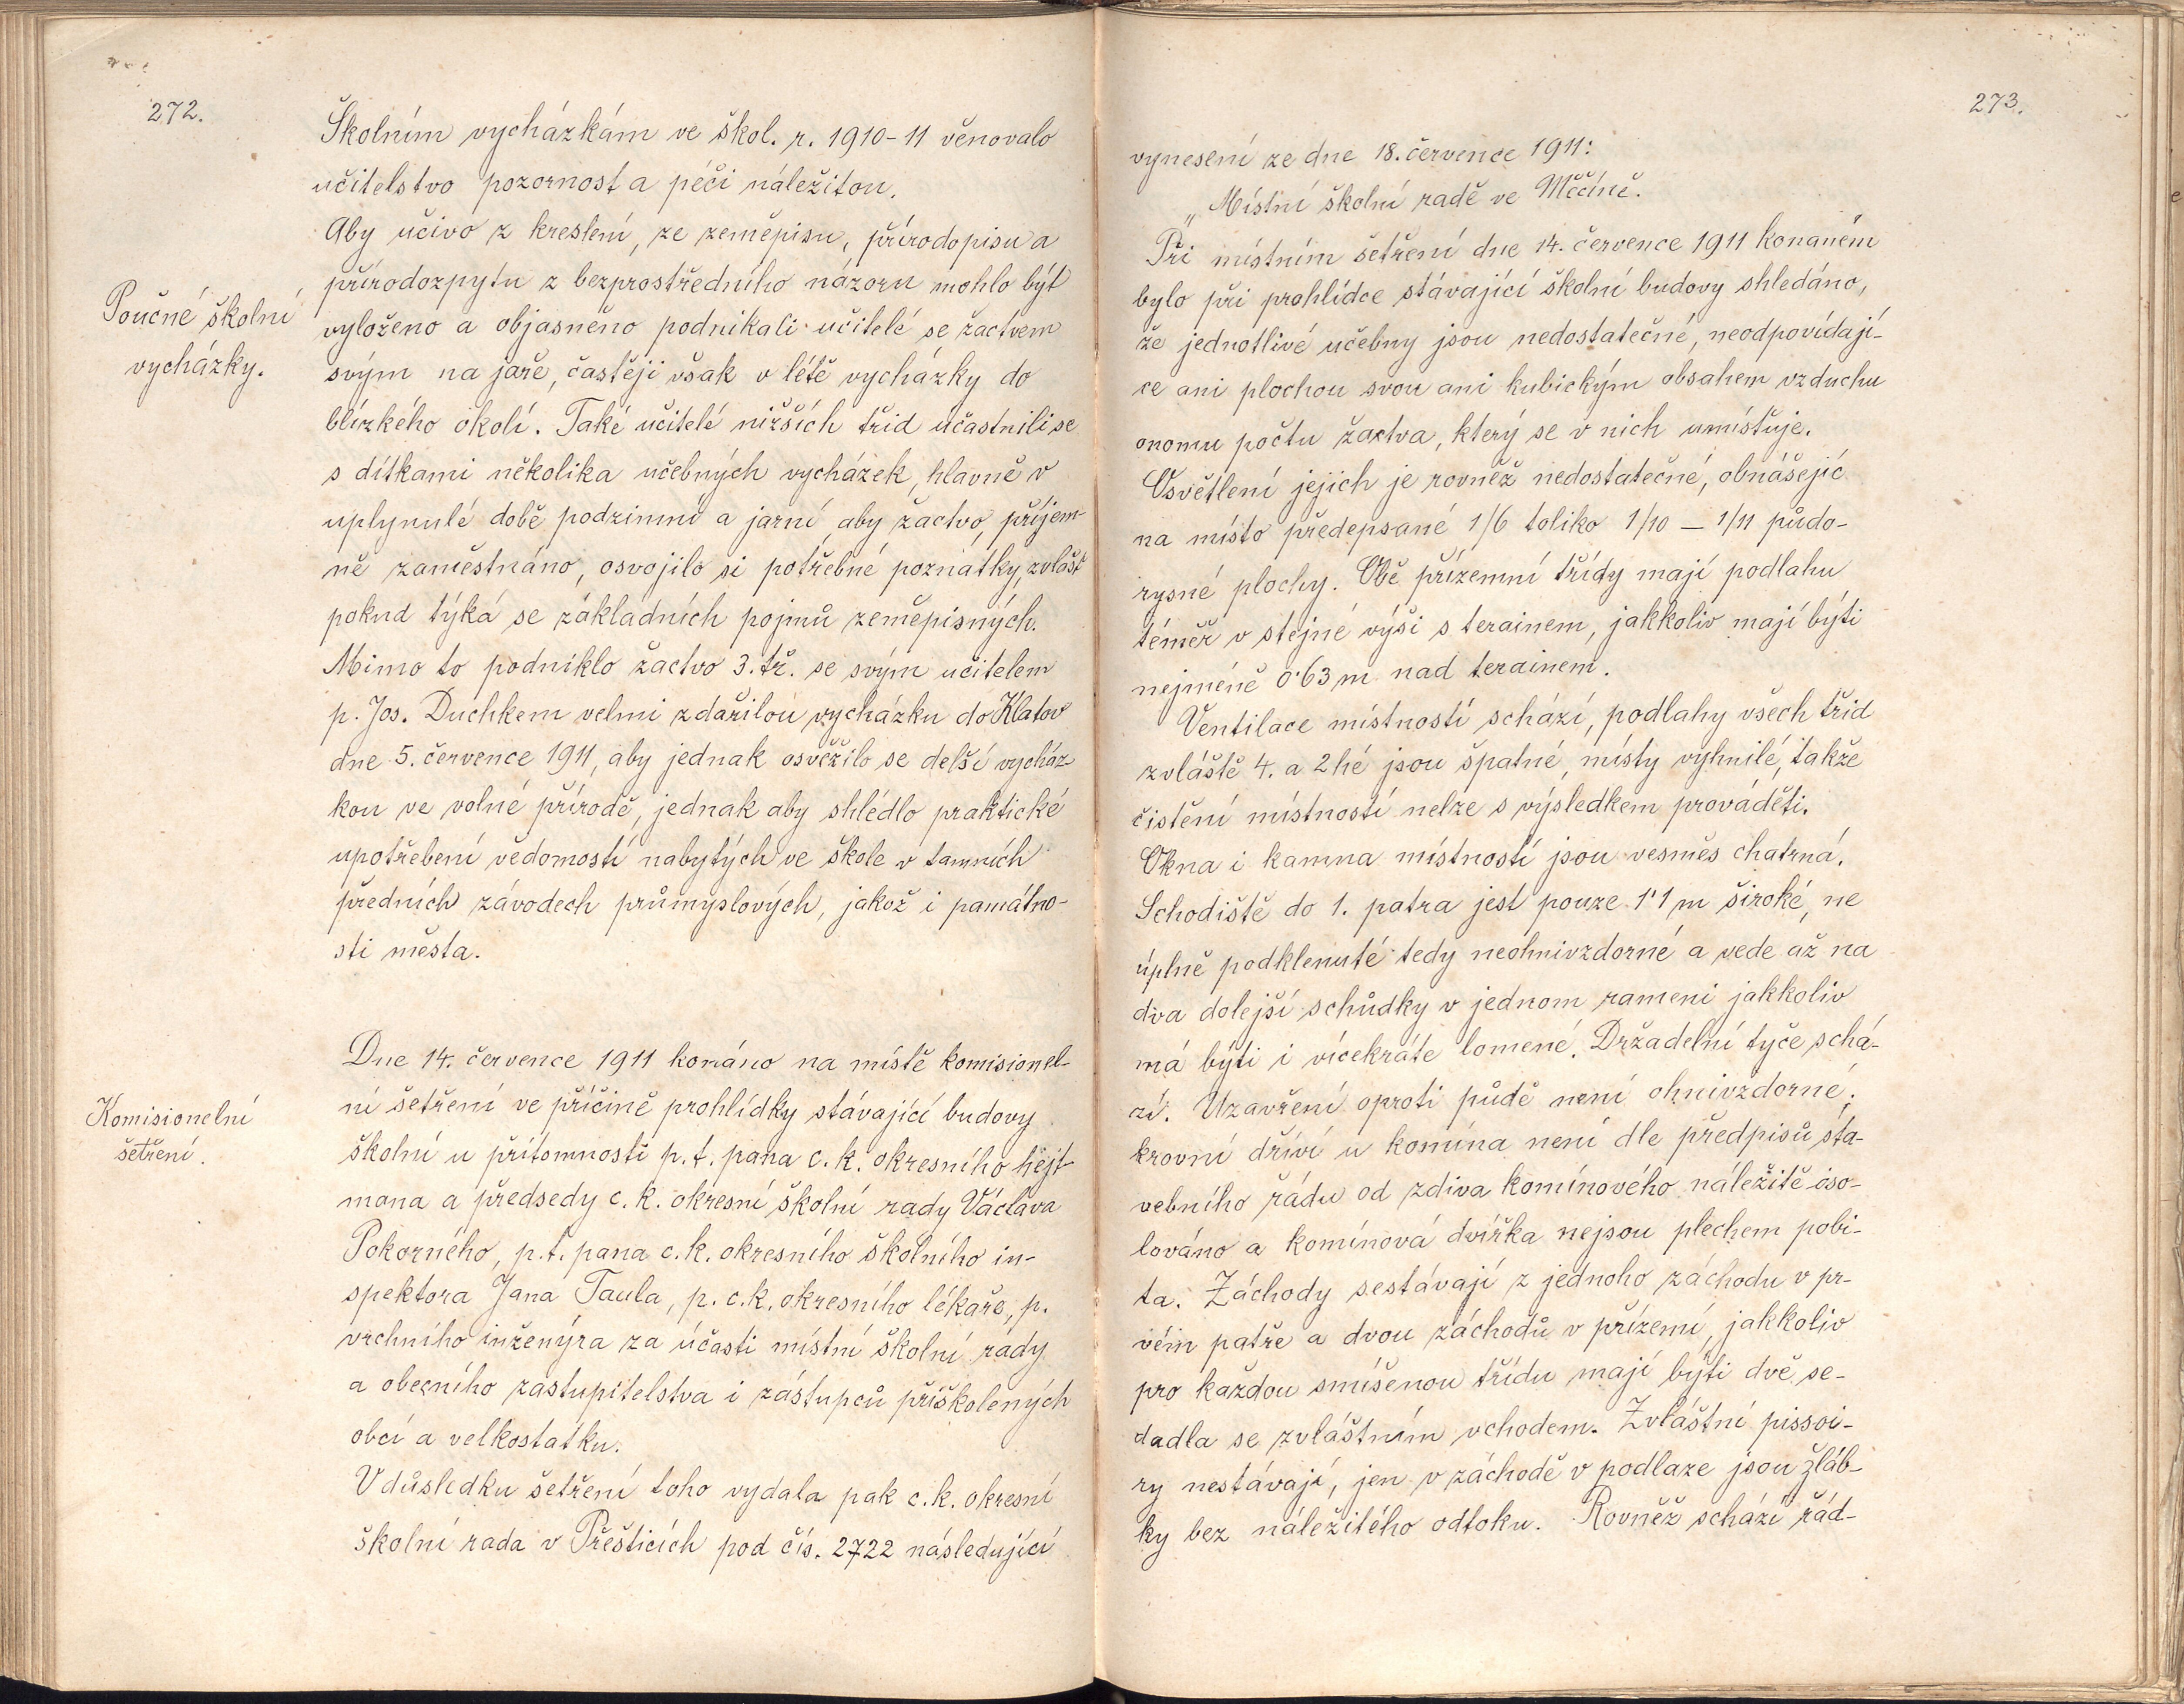 272.
Školním vycházkám ve škol. r. 1910-11 věnovalo
učitelstvo pozornost a péči náležitou.
Aby učivo z kreslení, ze zeměpisu, přírodopisu a
přírodozpytu z bezprostředního názoru mohlo být
Poučné školní
vycházky.
vyloženo a objasněno podnikali učitelé se žactvem
svým na jaře, častěji však v létě vycházky do
blízkého okolí. Také učitelé nižších tříd účastnili se
s dítkami několika učebných vycházek, hlavně v
uplynulé době podzimní a jarní, aby žactvo, příjem-
ně zaměstnáno, osvojilo si potřebné poznatky, zvlášt
pokud týká se základních pojmů zeměpisných.
Mimo to podniklo žactvo 3. tř. se svým učitelem
p. Jos. Duchkem velmi zdařilou vycházku do Klatov
dne 5. července 1911, aby jednak osvěžilo se delší vycház-
kou ve volné přírodě, jednak aby shlédlo praktické
upotřebení vědomostí nabytých ve škole v tamních
předních závodech průmyslových, jakož i památno-
sti města.
Komisionelní
šetření.
Dne 14. července 1911 konáno na místě komisionel-
ní šetření ve příčině prohlídky stávající budovy
školní u přítomnosti p. t. pana c. k. okresního hejt-
mana a předsedy c. k. okresní školní rady Václava
Pokorného, p. t. pana c. k. okresního školního in-
spektora Jana Taula, p. c. k. okresního lékaře, p.
vrchního inženýra za účasti místní školní rady
a obecního zastupitelstva i zástupců přiškolených
obcí a velkostatku.
V důsledku šetření toho vydala pak c. k. okresní
školní rada v Přešticích pod čís. 2722 následující
273.
vynesení ze dne 18. července 1911:
„Místní školní radě ve Měčíně.
Při místním šetření dne 14. července 1911 konaném
bylo při prohlídce stávající školní budovy shledáno,
že jednotlivé učebny jsou nedostatečné, neodpovídají-
ce ani plochou svou ani kubickým obsahem vzduchu
onomu počtu žactva, který se v nich umísťuje.
Osvětlení jejich je rovněž nedostatečné, obnášejíc
na místo předepsané 1/6 toliko 1/10 – 1/11 půdo-
rysné plochy. Obě přízemní třídy mají podlahu
téměř v stejné výši s terainem, jakkoliv mají býti
nejméně 0·63 m nad terainem.
Ventilace místností schází, podlahy všech tříd
zvláště 4. a 2hé jsou špatné, místy vyhnilé, takže
čistění místností nelze s výsledkem prováděti.
Okna i kamna místností jsou vesměs chatrná.
Schodiště do 1. patra jest pouze 1·1 m široké, ne
úplně podklenuté tedy neohnivzdorné a vede až na
dva dolejší schůdky v jednom rameni jakkoliv
má býti i vícekráte lomené. Držadelní tyče schá-
zí. Uzavření oproti půdě není ohnivzdorné;
krovní dříví u komína není dle předpisů sta-
vebního řádu od zdiva komínového náležitě iso-
lováno a komínová dvířka nejsou plechem pobi-
ta. Záchody sestávají z jednoho záchodu v pr-
vém patře a dvou záchodů v přízemí, jakkoliv
pro každou smíšenou třídu mají býti dvě se-
dadla se zvláštním vchodem. Zvláštní pissoi-
ry nestávají, jen v záchodě v podlaze jsou žláb-
ky bez náležitého odtoku. Rovněž schází řád-